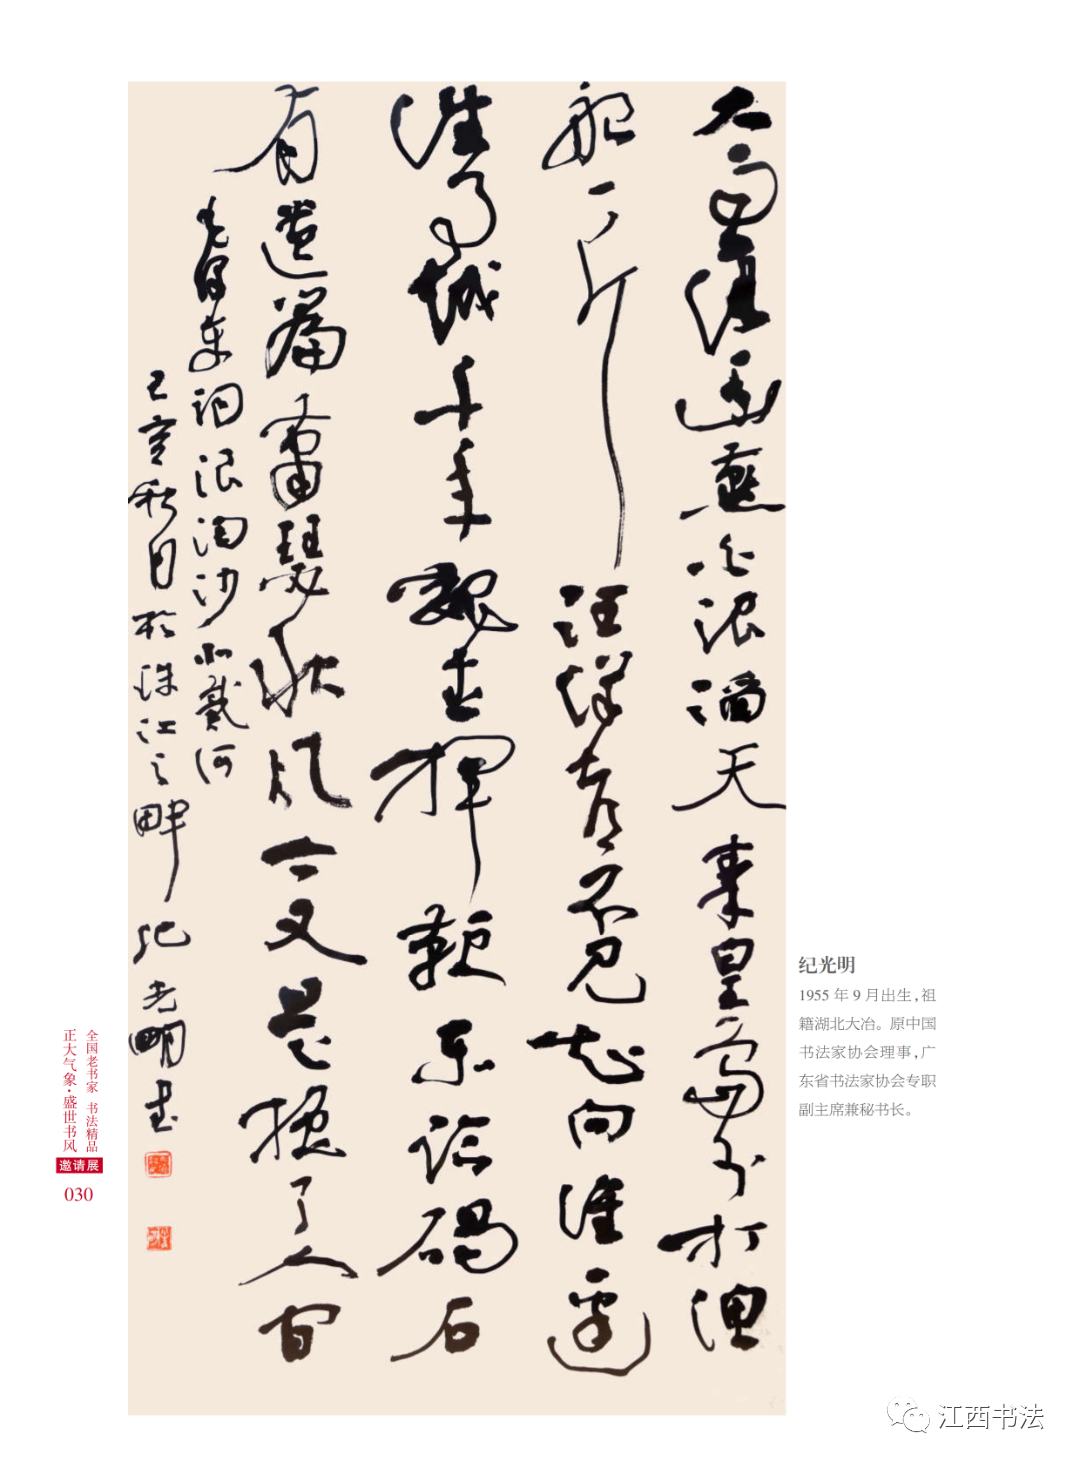 大雨落幽燕白浪滔天秦皇島外打漁
船一片汪洋都不見知向誰邊
往事越千年魏武揮鞭東臨碣石
有遺篇蕭瑟秋風今又是換了人間
毛澤東词浪淘沙北戴河
己亥秋日於珠江之畔纪光明書
纪光明
1955 年 9 月出生，祖
籍湖北大冶。原中国
书法家协会理事，广
东省书法家协会专职
副主席兼秘书长。
全国老书家 书法精品
正大气象·盛世书风
邀请展
030
江西书法